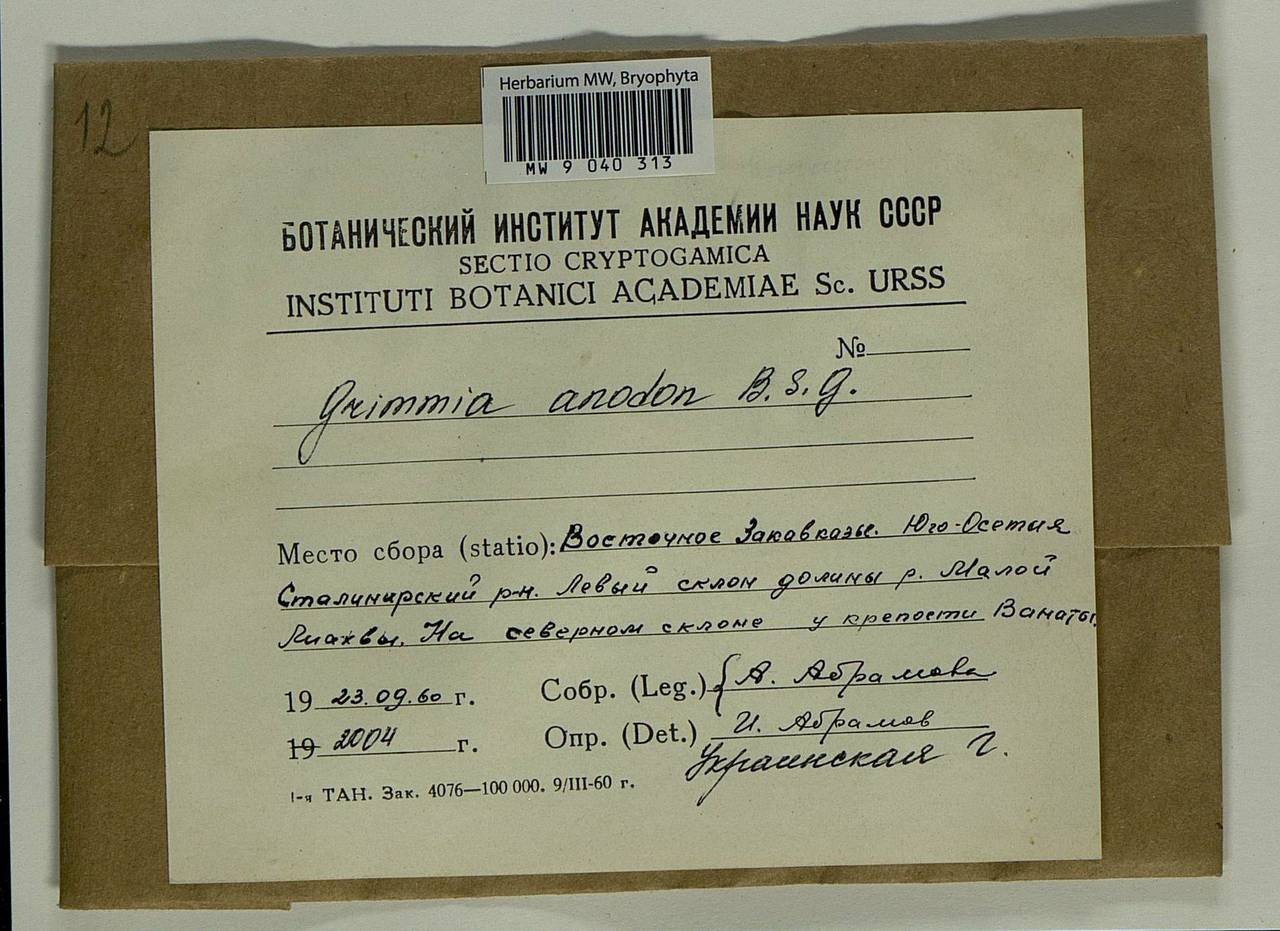 12
Herbarium MW, Bryophyta
MW 9 040 313
БОТАНИЧЕСКИЙ ИНСТИТУТ АКАДЕМИИ НАУК СССР
SECTIO CRYPTOGAMICA
INSTITUTI BOTANICI ACADEMIAE Sc. URSS
№
Grimmia anodon B.S.G.
Место сбора (statio): Восточное Закавказье. Юго-Осетия
Сталинирский р-н. Левый склон долины р. Малой
Лиахвы. На северном склоне у крепости Ванаты.
19 23.09.60 г. Собр. (Leg.) { А. Абрамова
19 2004 г. Опр. (Det.) И. Абрамов
Украинская Г.
1-я ТАН. Зак. 4076—100 000. 9/III-60 г.